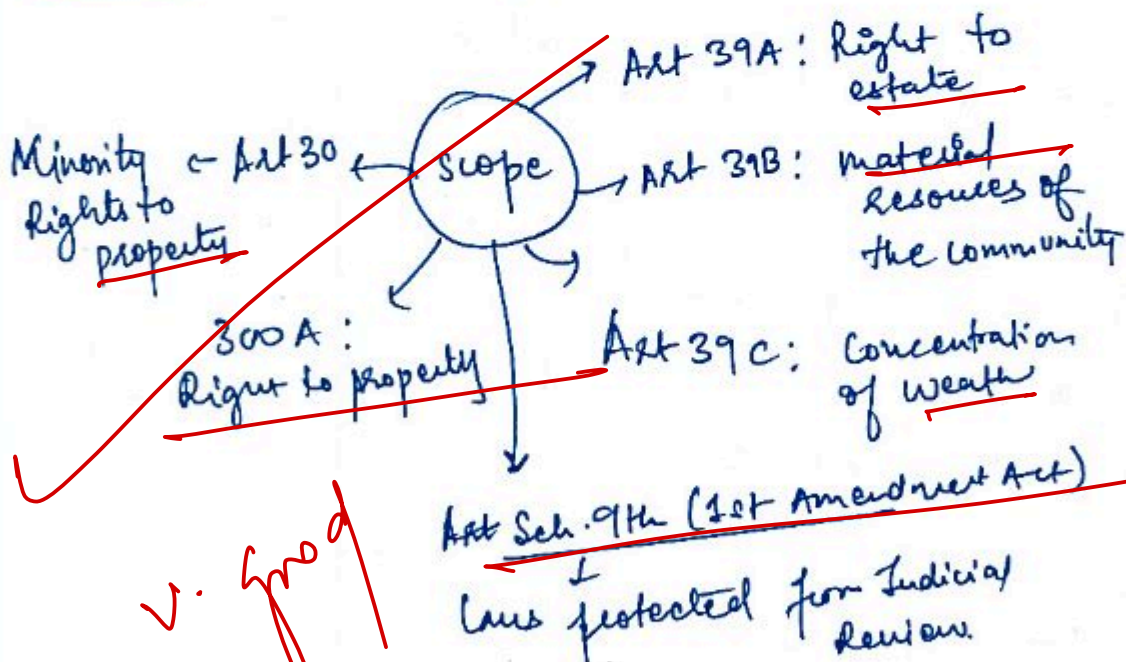 Art 39A : Right to
estate
Minority ← Art 30 ← scope → Art 39B : material
Rights to
property
resources of
the community
300A :
Right to property
Art 39C : Concentration
of Weath
Art Sch. 9th (1st Amendment Act)
↓
Laws protected from Judicial
Review.
v. good